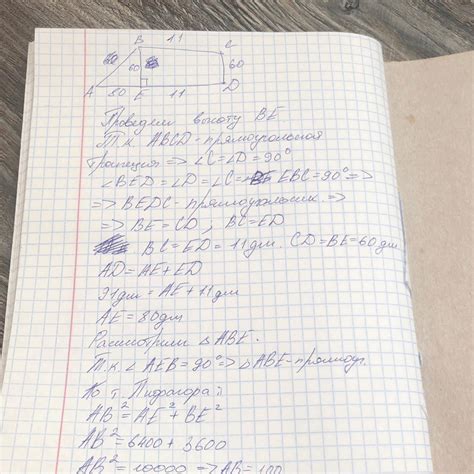 B 11 C
60 60
A 80 E 11 D
Проведем высоту BE
Т.к. ABCD - прямоугольная
трапеция => ∠C = ∠D = 90°
∠BED = ∠D = ∠C = EBC = 90° =>
=> BEDC - прямоугольник =>
=> BE = CD, BC = ED
BC = ED = 11 дм. CD = BE = 60 дм
AD = AE + ED
91 дм = AE + 11 дм
AE = 80 дм
Рассмотрим △ABE.
Т.к. ∠AEB = 90° => △ABE - прямоуг.
По т. Пифагора:
AB² = AE² + BE²
AB² = 6400 + 3600
AB² = 10000 => AB = 100